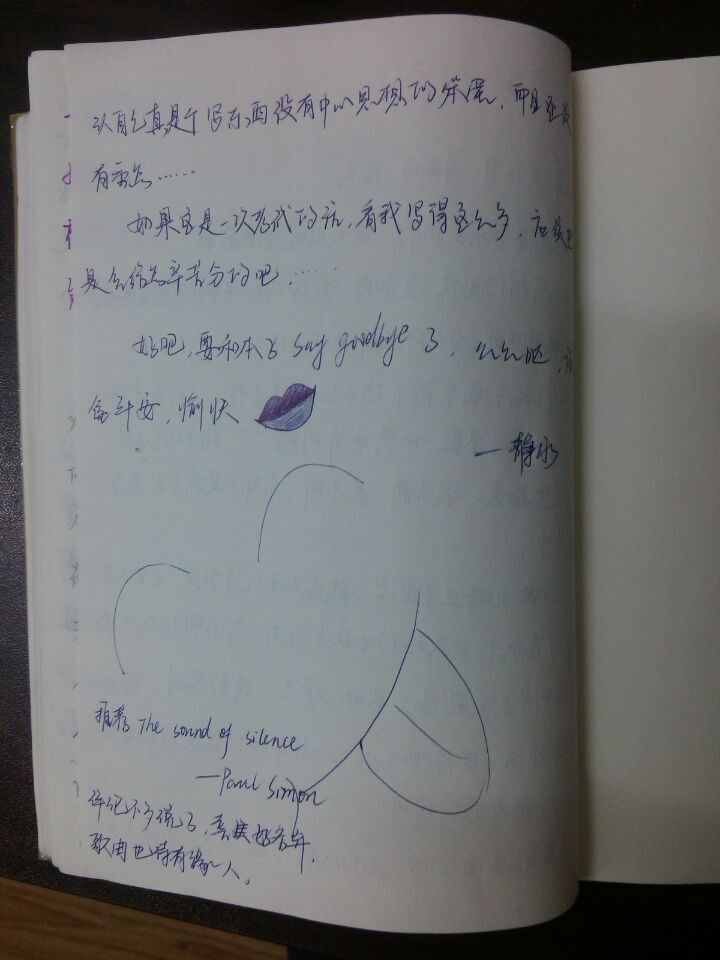 认自己真是个写东西没有中心思想的笨蛋，而且还没
有重点……
如果这是一次考试的话，看我写得这么多，应该也
是会给为辛苦分的吧……
好吧，要和本子 say goodbye 了，么么吧，
平安，愉快
—静水
推荐 The sound of silence
—Paul Simon
伴记不多说了，
歌曲也待有缘人。